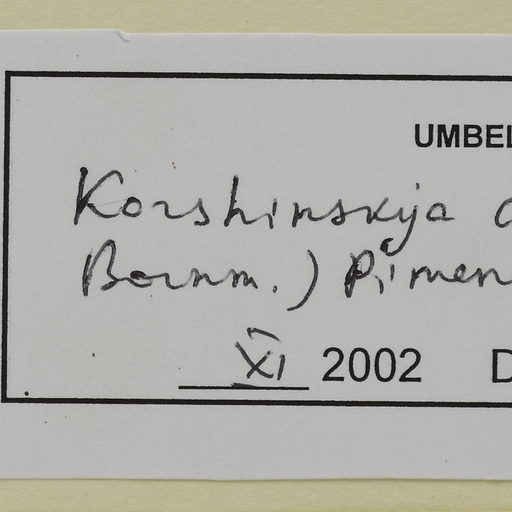 UMBEL
Korshinskija
Bornm.) Pimen
XI 2002 D